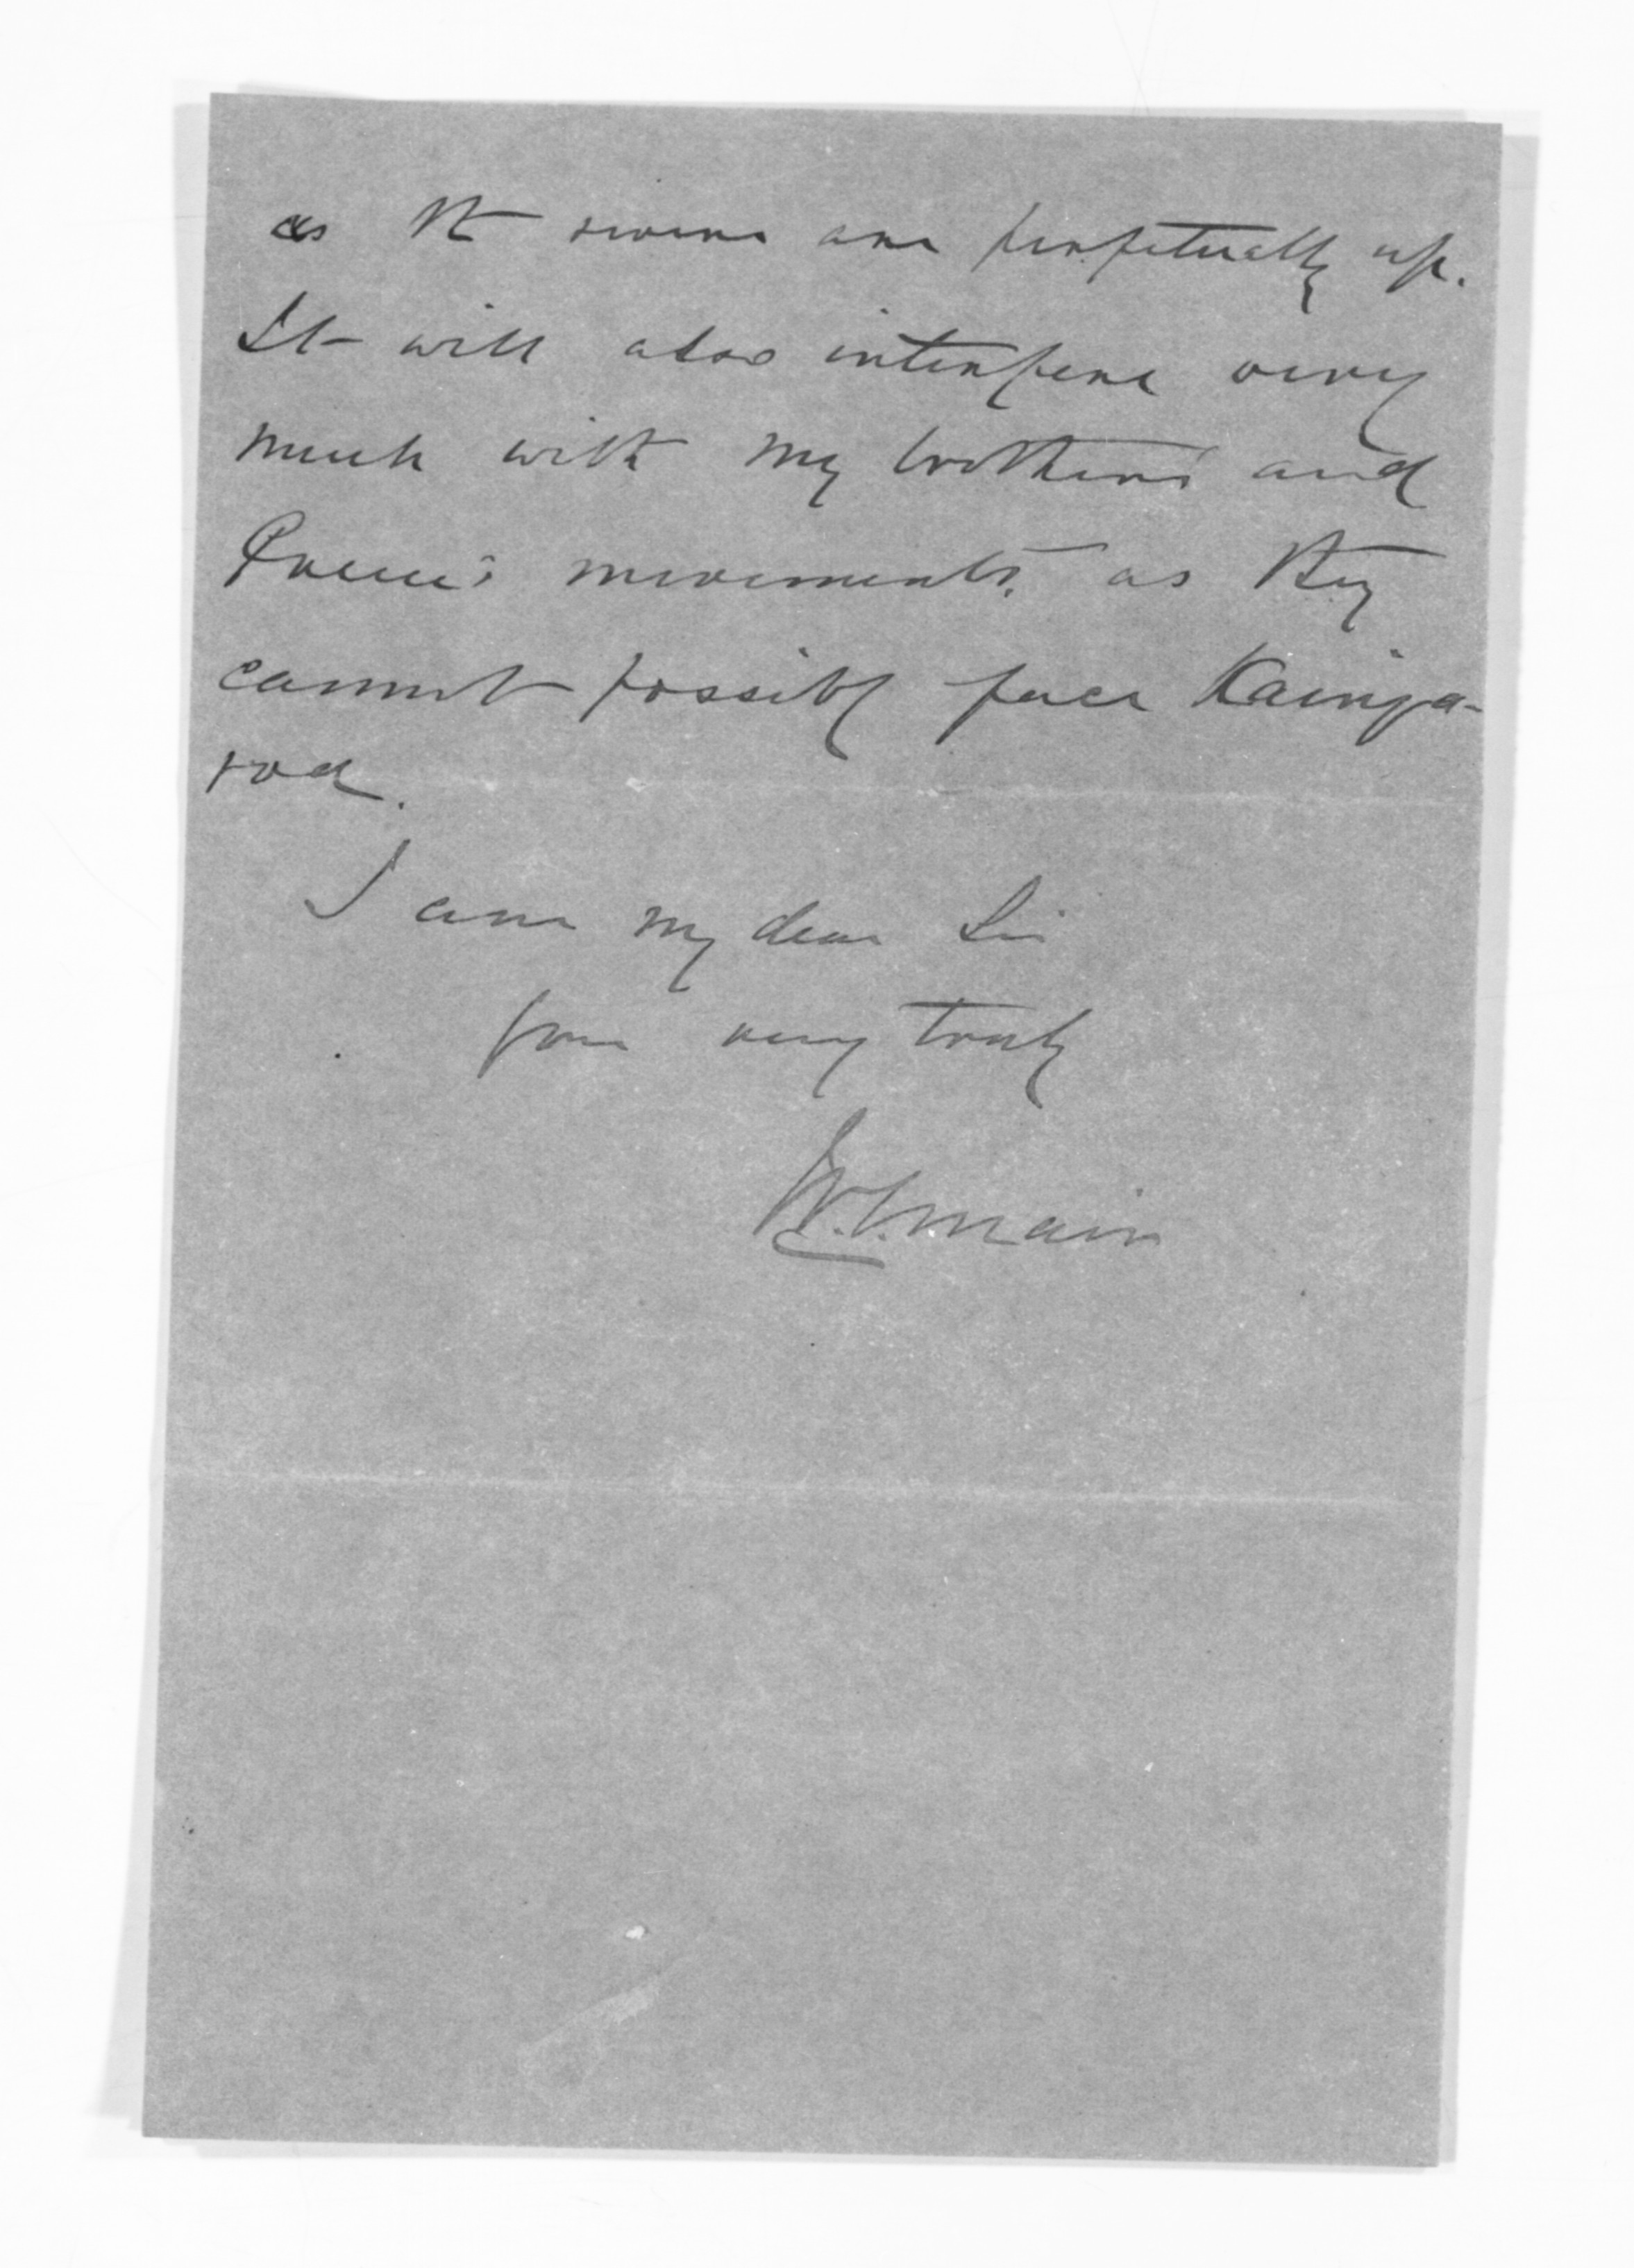 as the rivers are perpetually up.
It will also interfere very
much with my brother's and
Preece's movements, as they
cannot possibly face Kainga-
roa.
I am my dear Sir
yours very truly
W.G. Mair